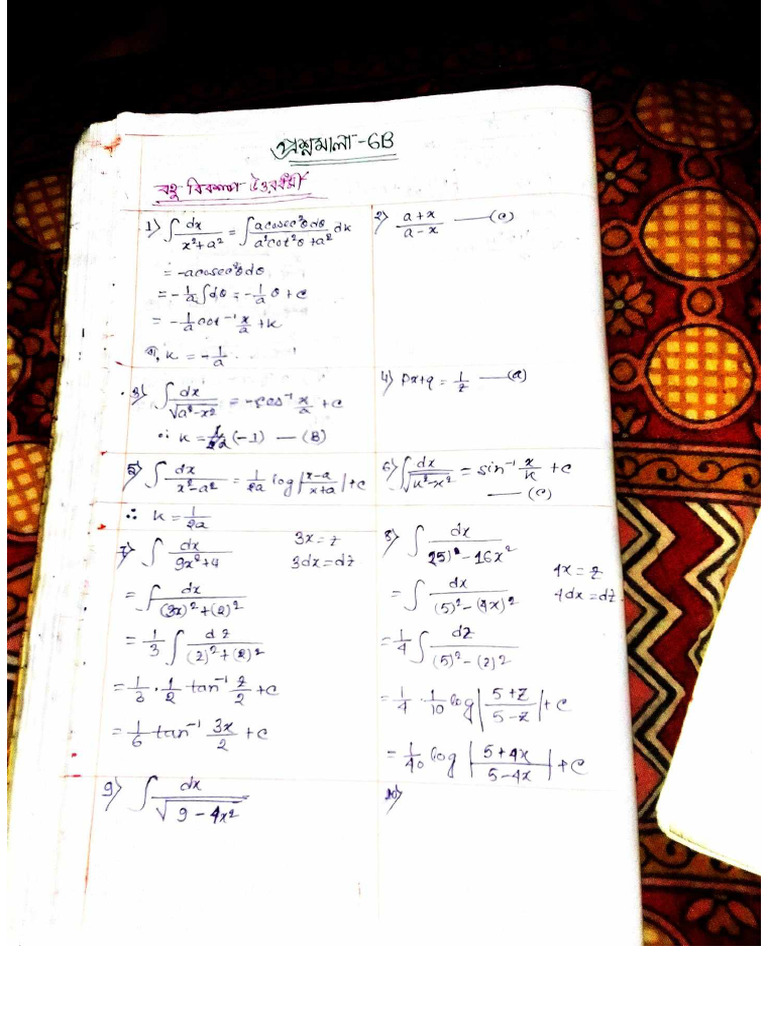 প্রশ্নমালা-6B
বহু বিকল্প উত্তরধর্মী
1) ∫ dx/(x²+a²) = ∫ a cosec²θ dθ/(a²cot²θ+a²) dk
= -a cosec²θ dθ
= -1/a ∫dθ = -1/a θ + c
= -1/a cot⁻¹ x/a + k
বা, k = -1/a
2) (a+x)/(a-x) — (c)
3) ∫ dx/√(a²-x²) = -cos⁻¹ x/a + c
∴ k = (-1) — (B)
4) px+q = 1/z — (a)
5) ∫ dx/(x²-a²) = 1/2a log|(x-a)/(x+a)| + c
∴ k = 1/2a
6) ∫ dx/√(k²-x²) = sin⁻¹ x/k + c
— (c)
7) ∫ dx/(9x²+4)
3x = z
3dx = dz
= ∫ dx/((3x)²+(2)²)
= 1/3 ∫ dz/((2)²+(z)²)
= 1/3 · 1/2 tan⁻¹ z/2 + c
= 1/6 tan⁻¹ 3x/2 + c
8) ∫ dx/(25)²-16x²
4x = z
4dx = dz
= ∫ dx/((5)²-(4x)²)
= 1/4 ∫ dz/((5)²-(2)²)
= 1/4 · 1/10 log|(5+z)/(5-z)| + c
= 1/40 log|(5+4x)/(5-4x)| + c
9) ∫ dx/√(9-4x²)
10)